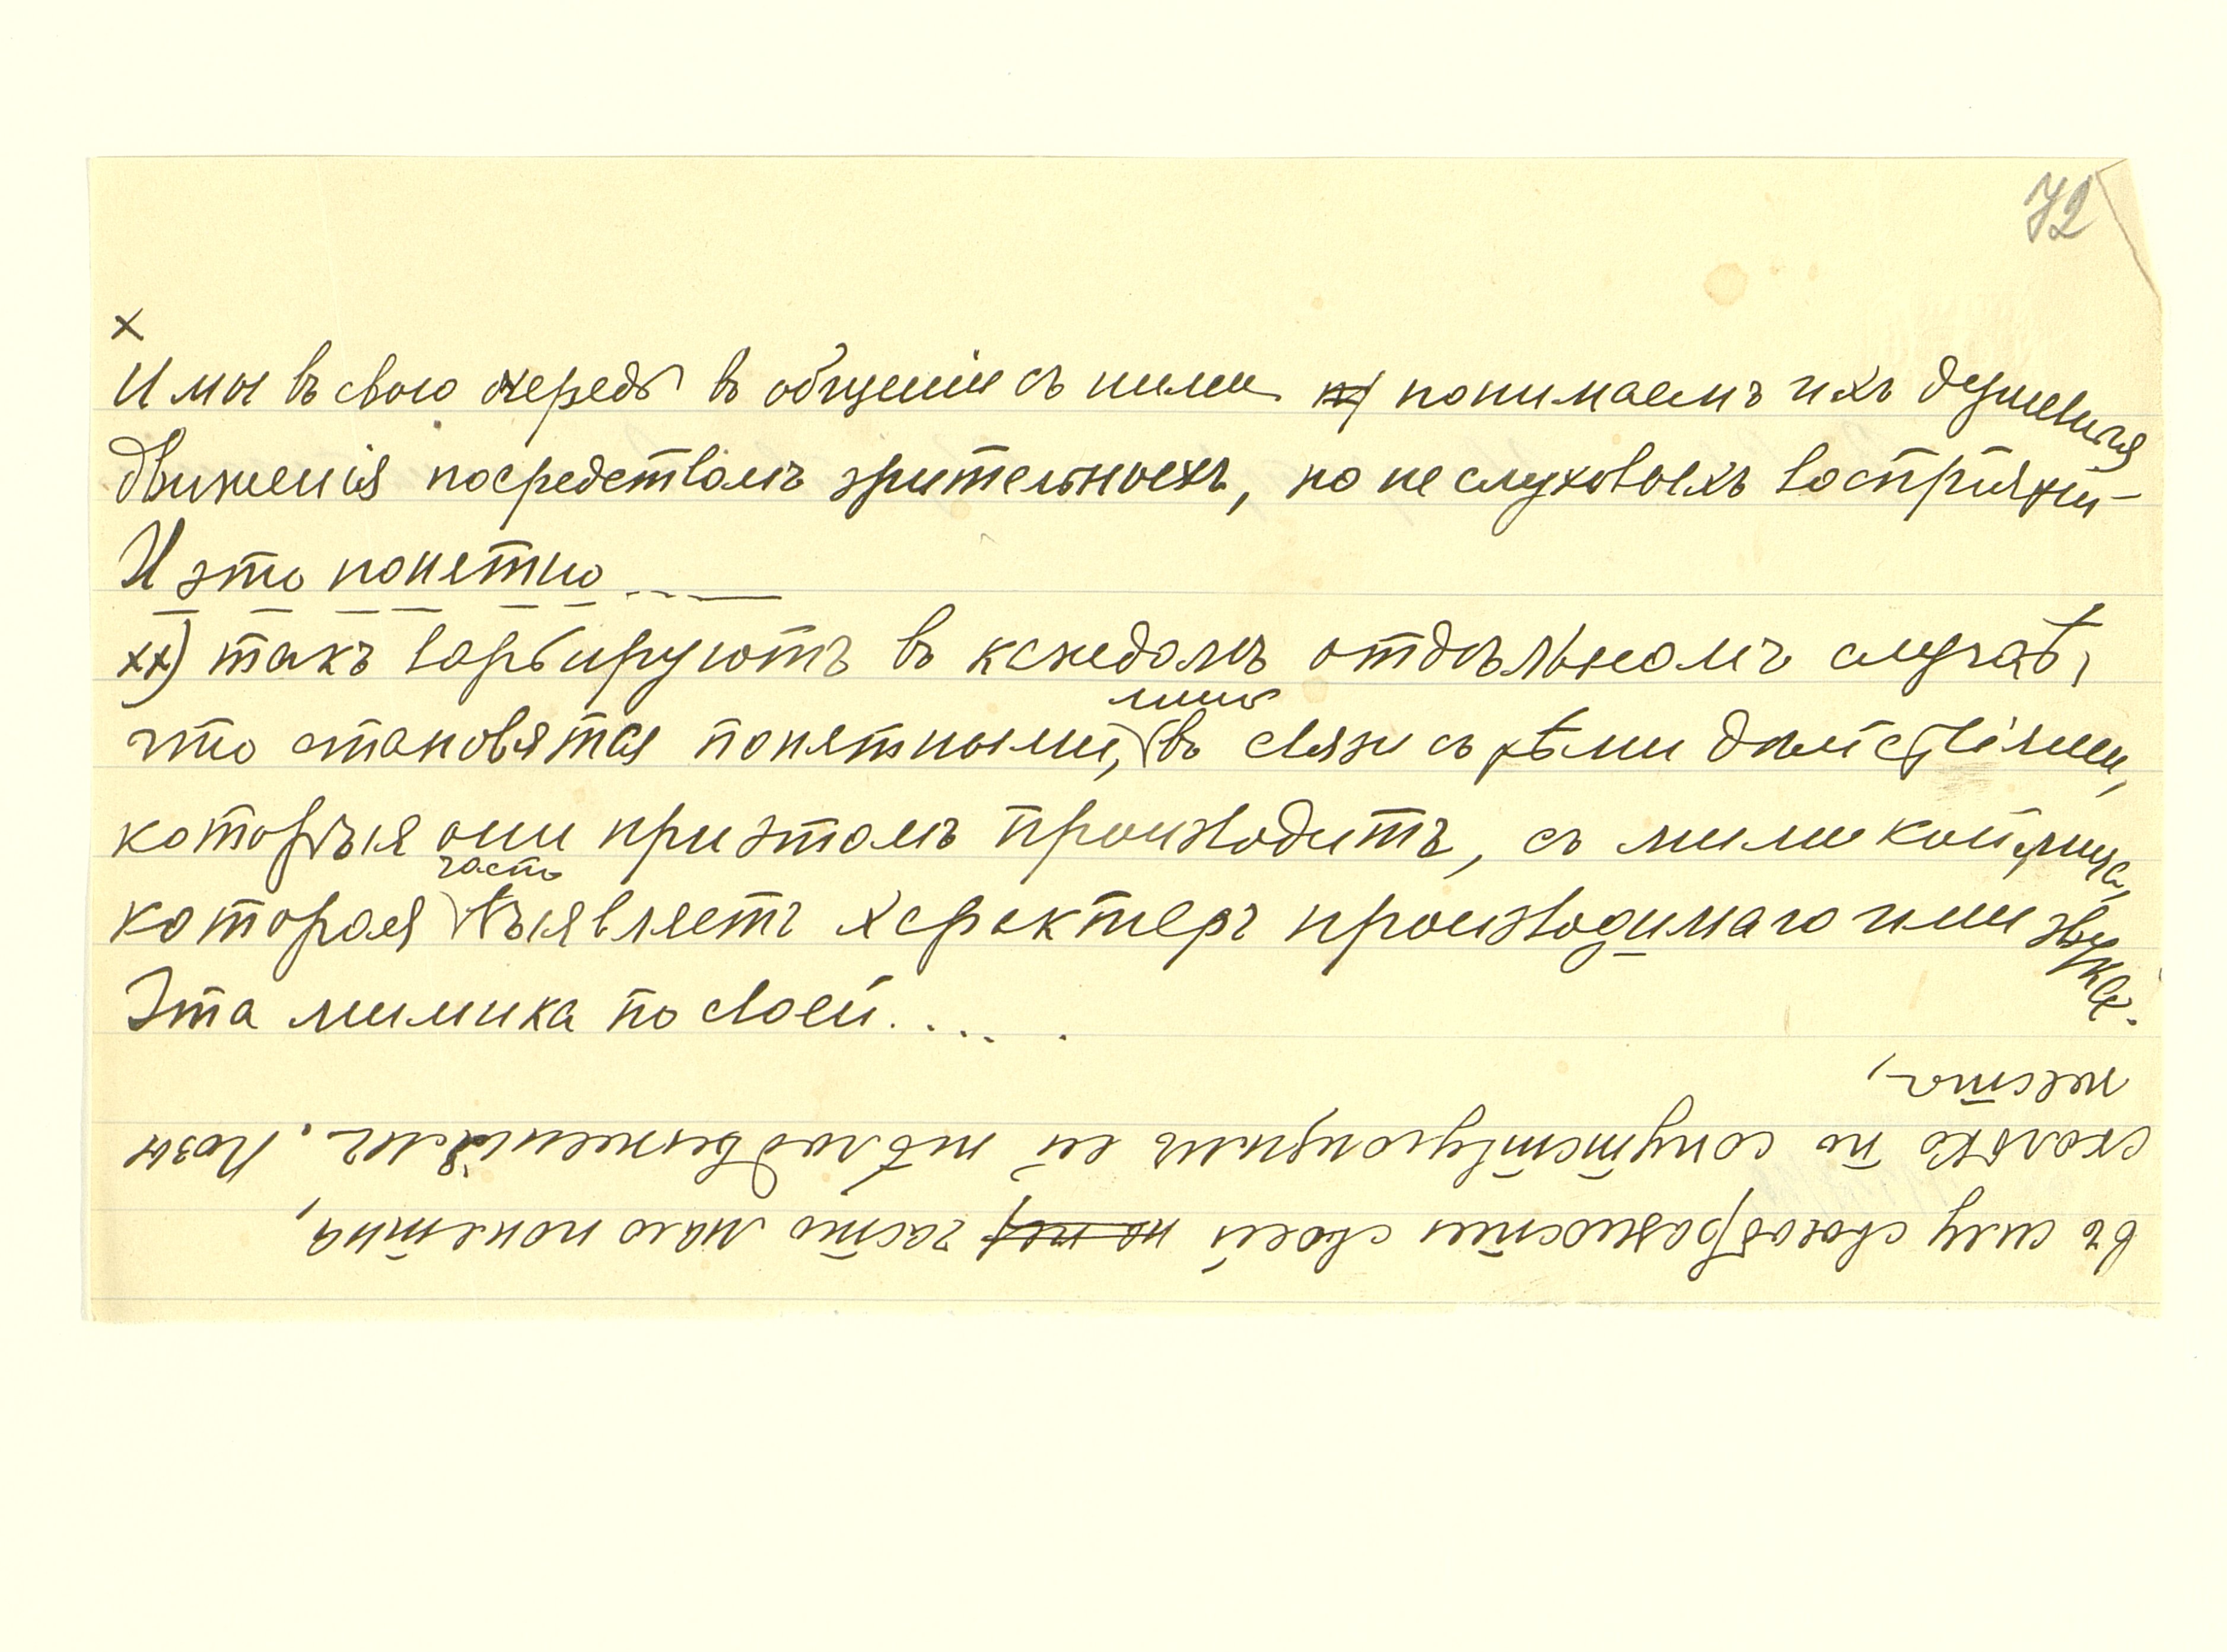 72
х
И мы въ свою очередь въ общеніи съ ними понимаемъ ихъ душевныя
движенія посредствомъ зрительныхъ, но не слуховыхъ воспріятій –
И это понятно
хх) такъ варьируютъ въ каждомъ отдѣльномъ случаѣ,
лишь
что становятся понятными, въ связи съ тѣми дѣйствіями,
которыя они при этомъ производятъ, съ мимикой лица,
часто
которая выявляетъ характеръ производимаго ими звука.
Эта мимика по своей.....
въ силу своеобразности своей часто мало понятна,
сколько по сопутствующимъ ей тѣлодвиженіямъ. Позы
жеста,